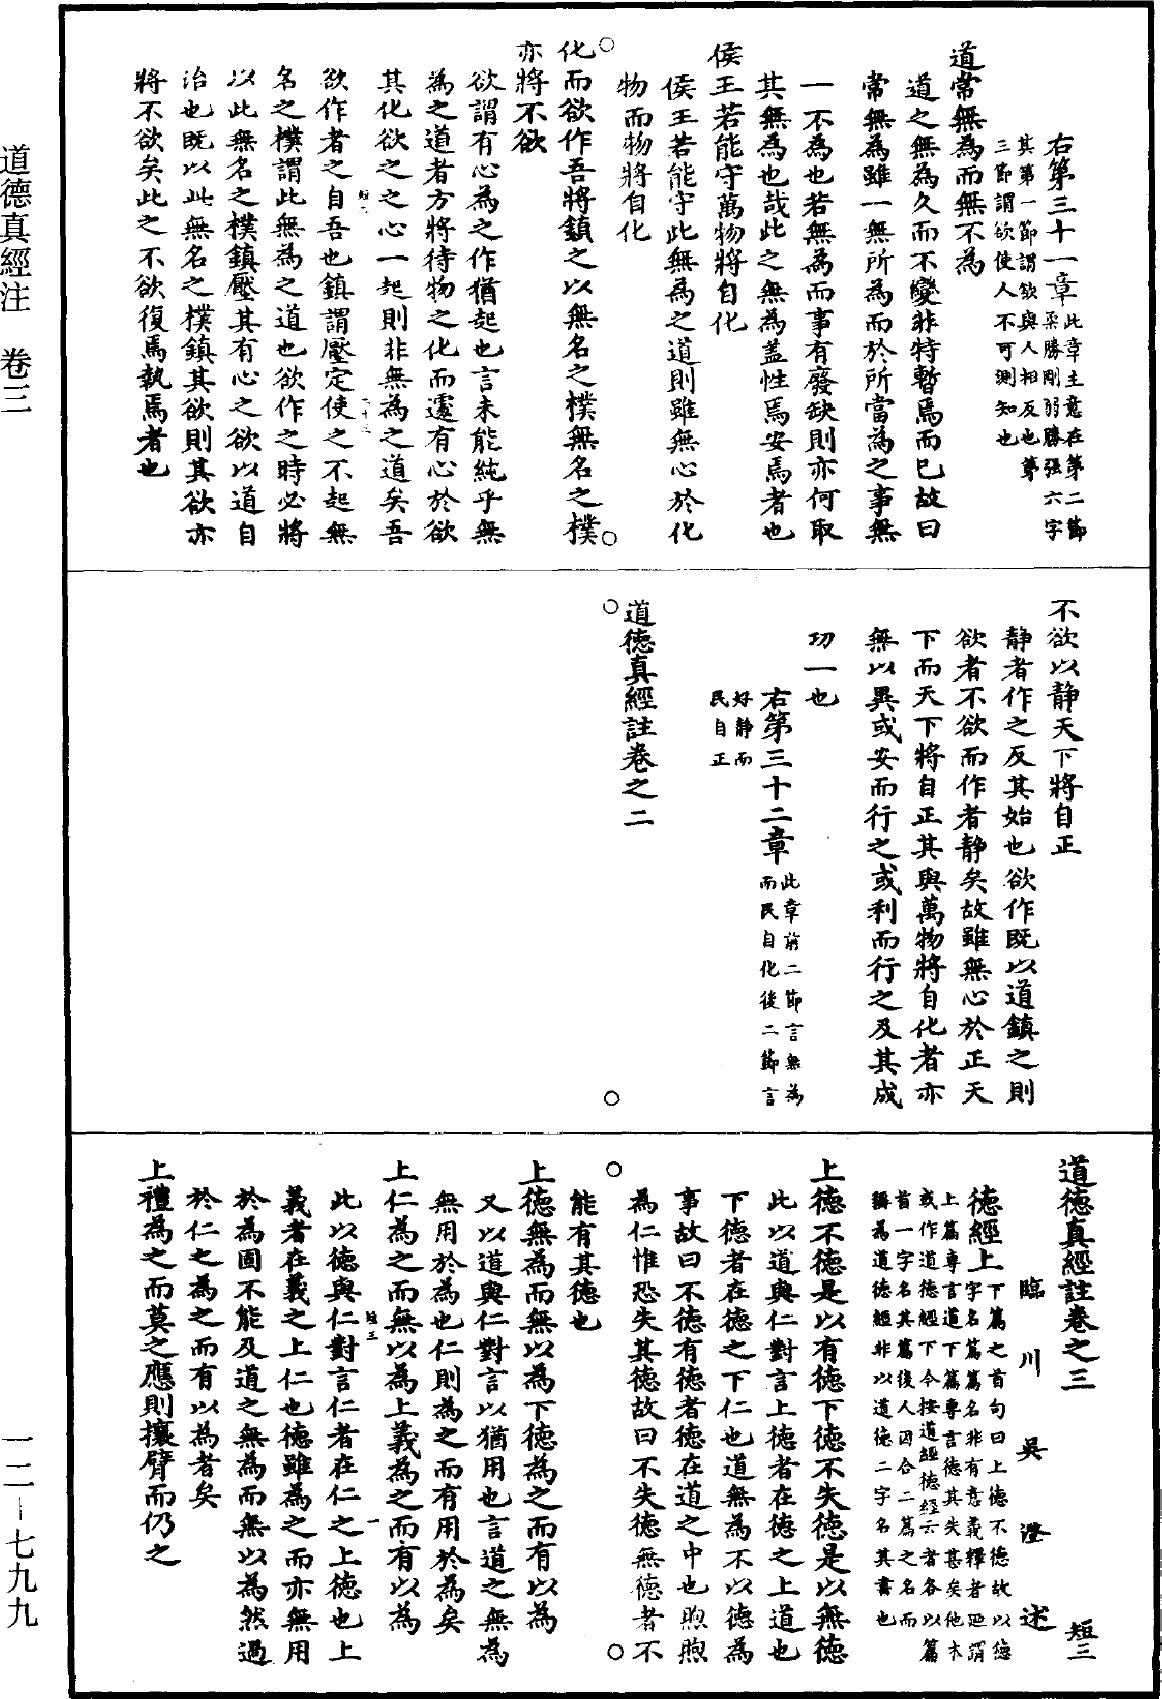 右第三十一章此章主意在第二節柔勝剛弱勝強六字
其第一節謂欲與人相反也第
三節謂欲使人不可測知也
道常無為而無不為
道之無為久而不變非特暫焉而已故曰
常無為雖一無所為而於所當為之事無
一不為也若無為而事有廢缺則亦何取
其無為也哉此之無為蓋性焉安焉者也
侯王若能守萬物將自化
侯王若能守此無為之道則雖無心於化
物而物將自化
化而欲作吾將鎮之以無名之樸無名之樸
亦將不欲
欲謂有心為之作猶起也言未能純乎無
為之道者方將待物之化而遽有心於欲
其化欲之之心一起則非無為之道矣吾
欲作者之自吾也鎮謂壓定使之不起無
名之樸謂此無為之道也欲作之時必將
以此無名之樸鎮壓其有心之欲以道自
治也既以此無名之樸鎮其欲則其欲亦
將不欲矣此之不欲復焉執焉者也
不欲以靜天下將自正
靜者作之反其始也欲作既以道鎮之則
欲者不欲而作者靜矣故雖無心於正天
下而天下將自正其與萬物將自化者亦
無以異或安而行之或利而行之及其成
功一也
右第三十二章此章前二節言無為而民自化後二節言
好靜而
民自正
道德真經註卷之二
道德真經註卷之三
短三
臨川吳澄述
德經上下篇之首句曰上德不德故以德字名篇篇名非有意義釋者迺謂
上篇專言道下篇專言德其失甚矣他本
或作道德經下今按道經德經云者各以篇
首一字名其篇後人因合二篇之名而
稱為道德經非以道德二字名其書也
上德不德是以有德下德不失德是以無德
此以道與仁對言上德者在德之上道也
下德者在德之下仁也道無為不以德為
事故曰不德有德者德在道之中也煦煦
為仁惟恐失其德故曰不失德無德者不
能有其德也
上德無為而無以為下德為之而有以為
又以道與仁對言以猶用也言道之無為
無用於為也仁則為之而有用於為矣
上仁為之而無以為上義為之而有以為
此以德與仁對言仁者在仁之上德也上
義者在義之上仁也德雖為之而亦無用
於為固不能及道之無為而無以為然過
於仁之為之而有以為者矣
上禮為之而莫之應則攘臂而仍之
道德真經注 卷三
一二-七九九